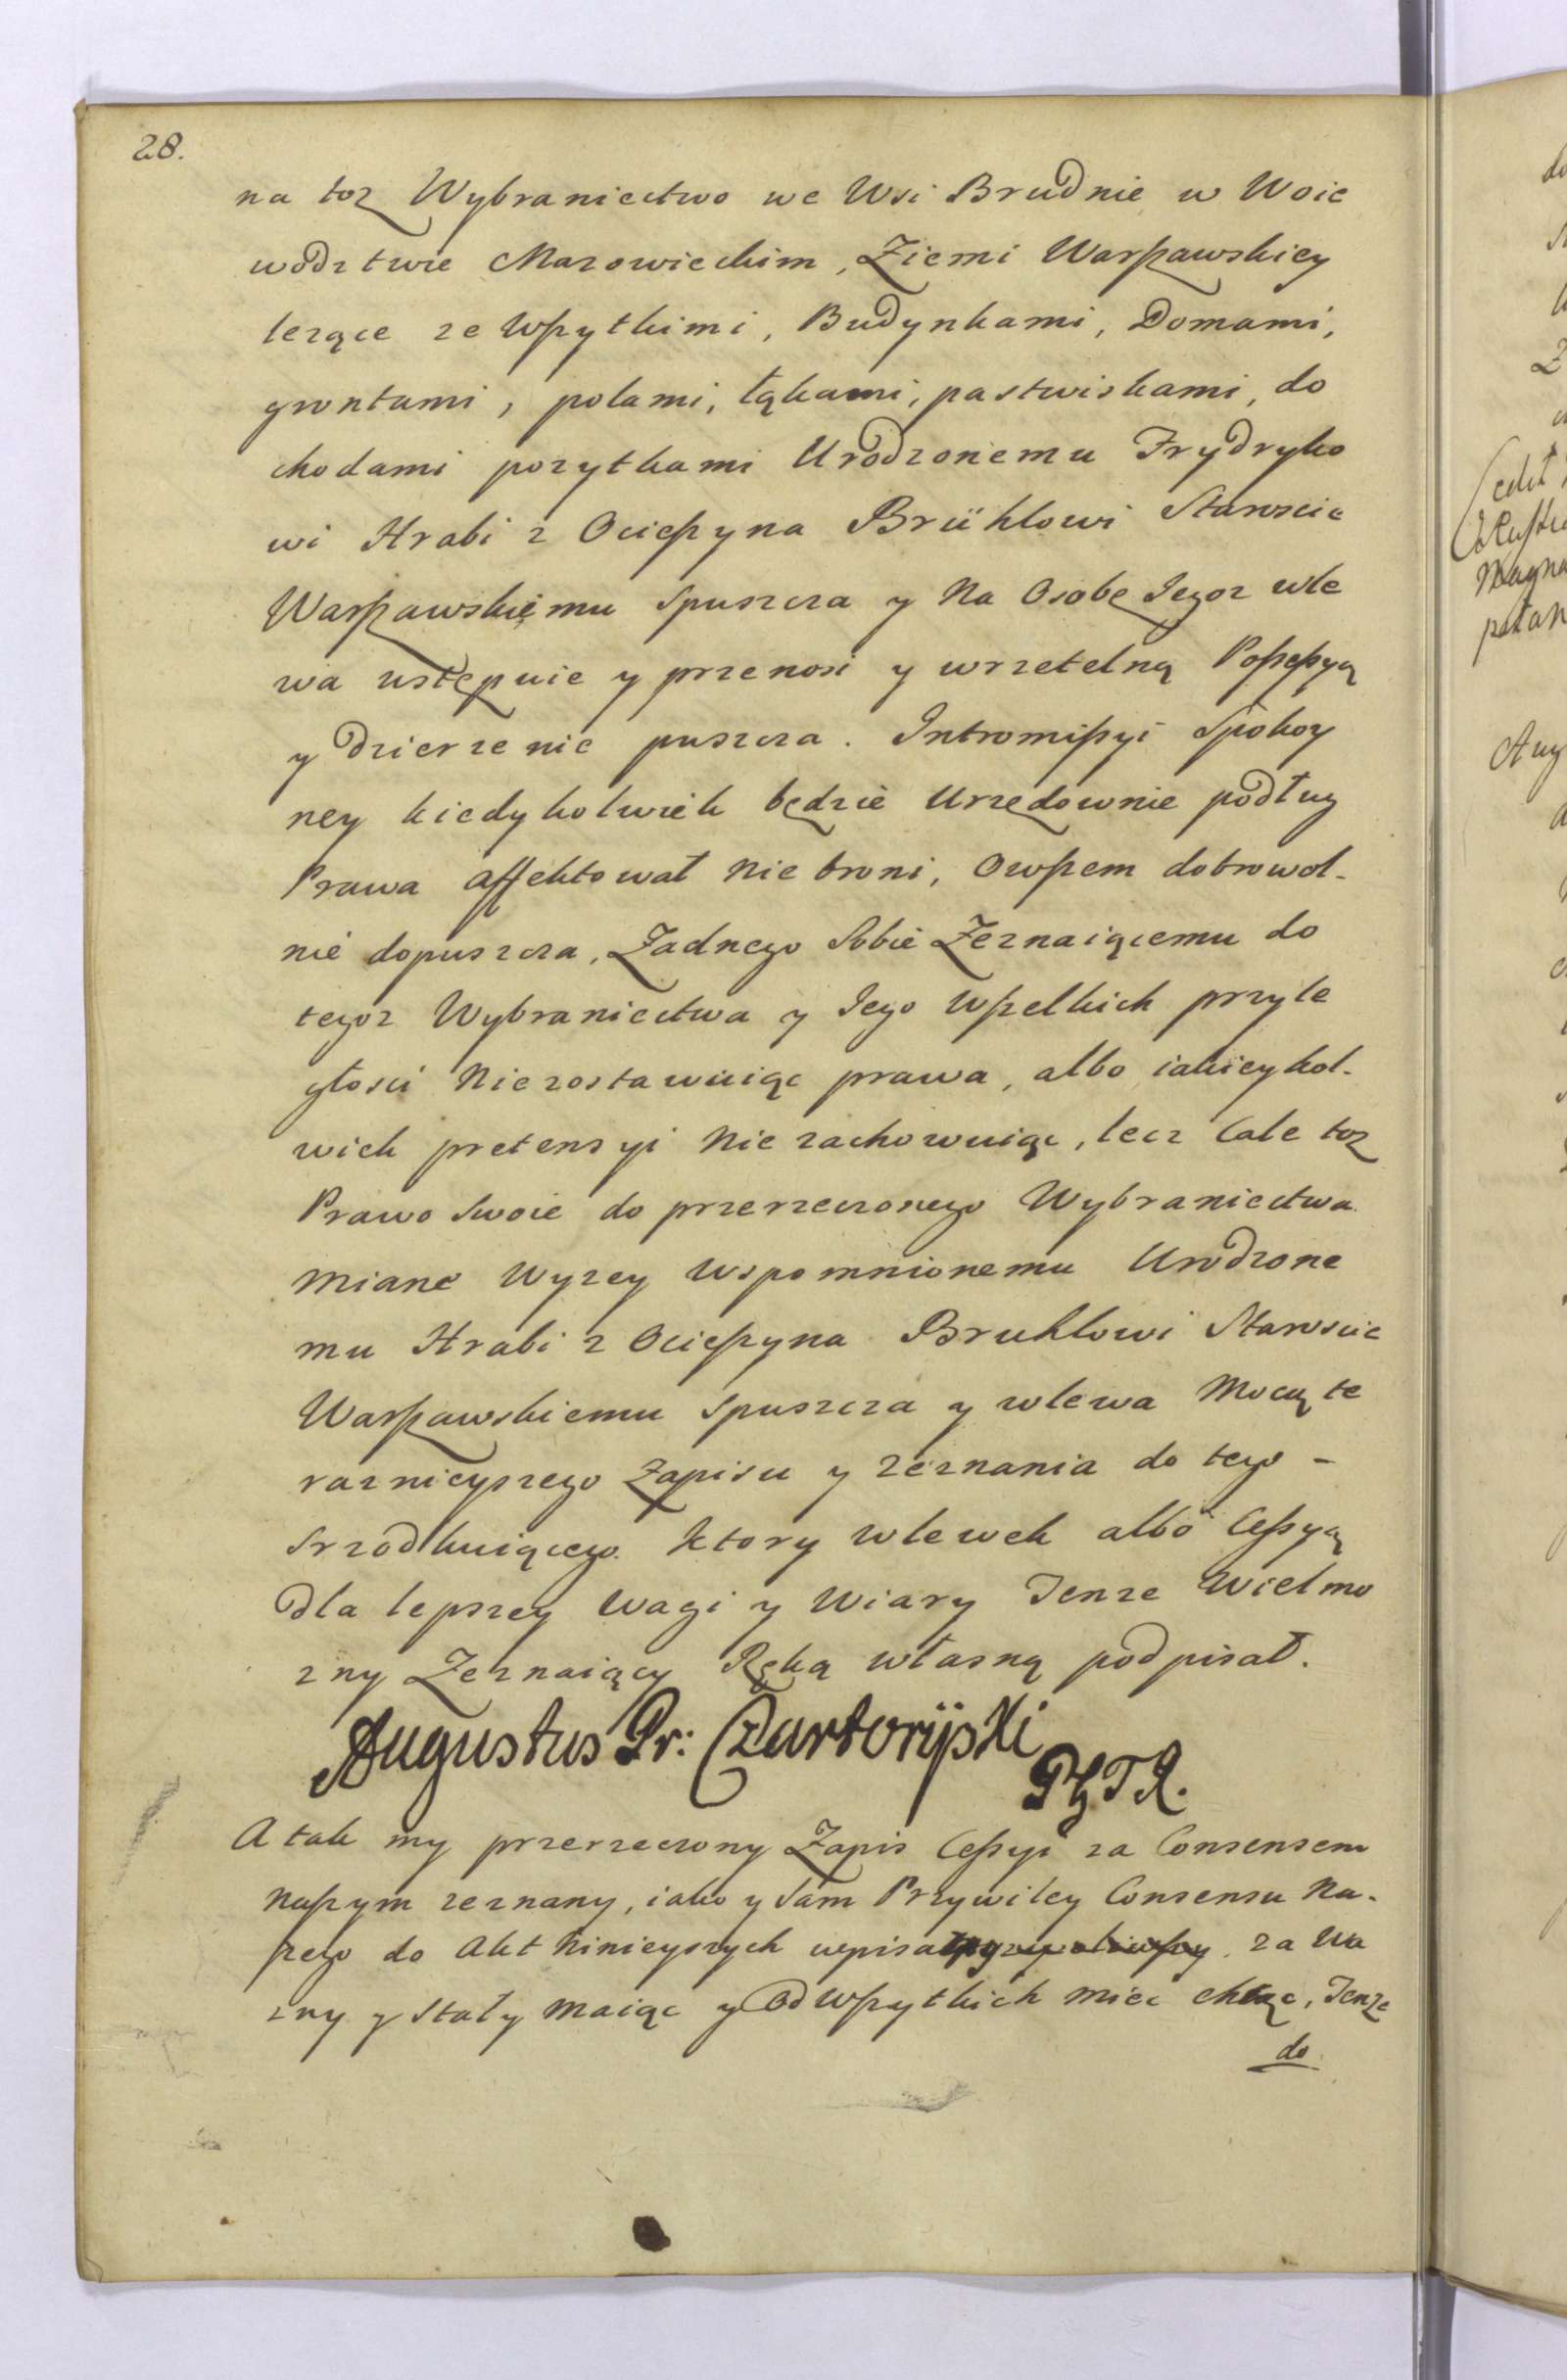 28.
na toz Wybraniectwo we Wsi Brudnie w Woie
wodztwie Mazowieckim, Ziemi Warszawskiey
lezące ze Wszytkimi, Budynkami, Domami,
grontami, polami, łąkami, pastwiskami, do
chodami pozytkami Urodzonemu Frydryko
wi Hrabi z Ocieszyna Brühlowi Staroscie
Warszawskiemu Spuszcza y Na Osobę Iegoz wle
wa ustępuie y przenosi y wrzetelną Possessyą
y Dzierzenie puszcza. Intromissyi Spokoy
ney kiedykolwiek będzie Urzędownie podług
Prawa affektował Nie broni, Owszem dobrowol-
nie dopuszcza, Zadnego Sobie Zeznaiącemu do
tegoz Wybraniectwa y Iego Wszelkich przyle
głosci Niezostawuiąc prawa, albo iakieykol-
wiek pretensyi Nie zachowuiąc, lecz Cale toz
Prawo Swoie do przerzeczonego Wybraniectwa
miane Wyzey Wspomnionemu Urodzone
mu Hrabi z Ocieszyna Bruhlowi Staroscie
Warszawskiemu Spuszcza y wlewa Mocą te
raznieyszego Zapisu y zeznania do tego -
srzodkuiącego. Ktory wlewek albo Cessyą
Dla lepszey Wagi y Wiary Tenze Wielmo
zny Zeznaiący Ręką własną podpisał.
Augustus Pr: Czartoryiski
A tak my przerzeczony Zapis Cessyi za Consensem
Naszym zeznany, iako y Sam Przywiley Consensu Na-
szego do Akt Ninieyszych wpisa za Wa
zny y Stały maiąc y Od Wszytkich miec chcąc, Tenze
do